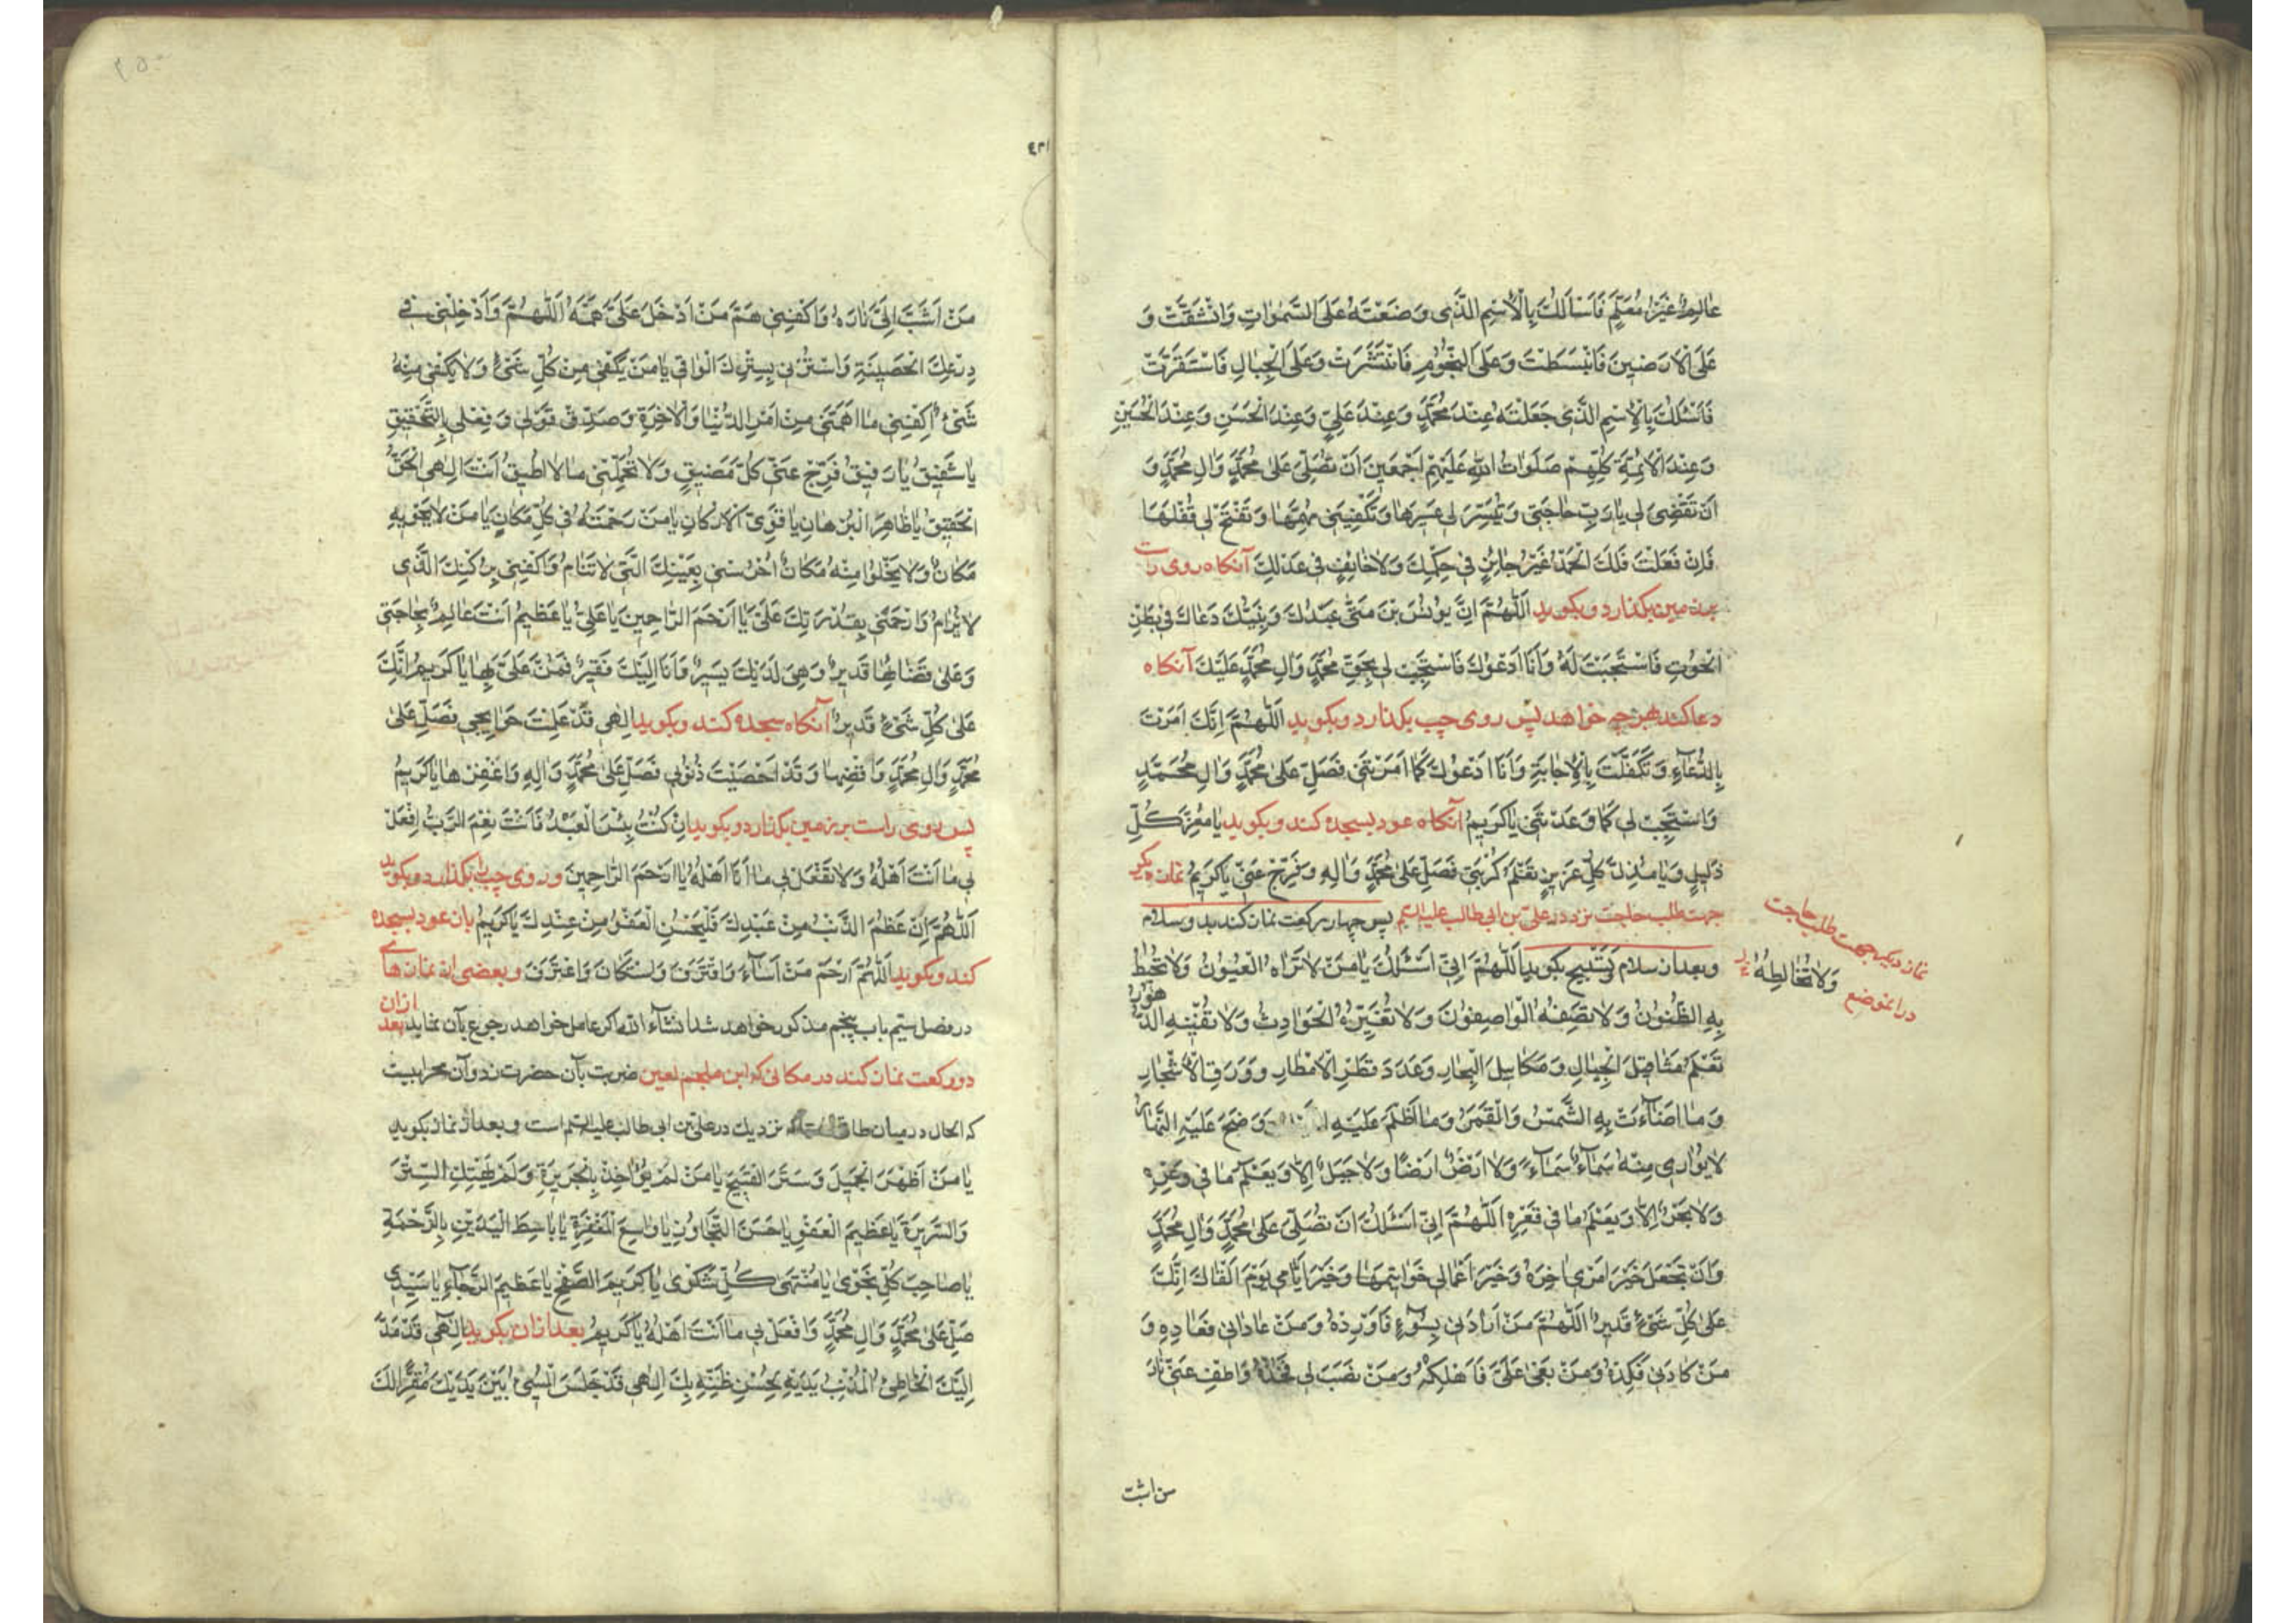 عٰالِمٌ غَيْرُ مُعَلَّمٍ فَاَسْأَلُكَ بِالْاِسْمِ الَّذٖى وَضَعْتَهُ عَلَى السَّمٰوٰاتِ وَانْشَقَّتْ وَ
عَلَى الْاَرَضٖينَ فَانْبَسَطَتْ وَعَلَى النُّجُومِ فَانْتَثَرَتْ وَعَلَى الْجِبٰالِ فَاسْتَقَرَّتْ
فَاَسْئَلُكَ بِالْاِسْمِ الَّذٖى جَعَلْتَهُ عِنْدَ مُحَمَّدٍ وَعِنْدَ عَلِيٍّ وَعِنْدَ الْحَسَنِ وَعِنْدَ الْحُسَيْنِ
وَعِنْدَ الْاَئِمَّةِ كُلِّهِمْ صَلَوٰاتُ اللّٰهِ عَلَيْهِمْ اَجْمَعٖينَ اَنْ تُصَلِّىَ عَلىٰ مُحَمَّدٍ وَاٰلِ مُحَمَّدٍ وَ
اَنْ تَقْضِىَ لٖى يٰا رَبِّ حٰاجَتٖى وَتُيَسِّرَ لٖى عَسٖيرَهٰا وَتَكْفِيَنٖى مُهِمَّهٰا وَتَفْتَحَ لٖى قُفْلَهٰا
فَاِنْ فَعَلْتَ فَلَكَ الْحَمْدُ غَيْرُ جٰائِرٍ فٖى حُكْمِكَ وَلاٰ خٰائِفٍ فٖى عَدْلِكَ آنكاه روى راست
بر زمين بكذارد وبكويد اَللّٰهُمَّ اِنَّ يُونُسَ بْنَ مَتّٰى عَبْدُكَ وَنَبِيُّكَ دَعٰاكَ فٖى بَطْنِ
الْحُوتِ فَاسْتَجَبْتَ لَهُ وَاَنَا اَدْعُوكَ فَاسْتَجِبْ لٖى بِحَقِّ مُحَمَّدٍ وَاٰلِ مُحَمَّدٍ عَلَيْكَ آنكاه
دعا كند بهر چه خواهد پس روى چپ بكذارد وبكويد اَللّٰهُمَّ اِنَّكَ اَمَرْتَ
بِالدُّعٰاءِ وَتَكَفَّلْتَ بِالْاِجٰابَةِ وَاَنَا اَدْعُوكَ كَمٰا اَمَرْتَنٖى فَصَلِّ عَلىٰ مُحَمَّدٍ وَاٰلِ مُحَمَّدٍ
وَاسْتَجِبْ لٖى كَمٰا وَعَدْتَنٖى يٰا كَرٖيمُ آنكاه عود بسجده كند وبكويد يٰا مُعِزَّ كُلِّ
ذَلٖيلٍ وَيٰا مُذِلَّ كُلِّ عَزٖيزٍ تَعْلَمُ كُرْبَتٖى فَصَلِّ عَلىٰ مُحَمَّدٍ وَاٰلِهِ وَفَرِّجْ عَنّٖى يٰا كَرٖيمُ نماز ديكر
جهت طلب حاجت نزد در علىّ بن ابى طالب عليه السلم پس چهار ركعت نماز كند بدو سلام
وبعد از سلام وتسبيح بكويد اَللّٰهُمَّ اِنّٖى اَسْئَلُكَ يٰا مَنْ لاٰ تَرٰاهُ الْعُيُونُ وَلاٰ تُحٖيطُ
نماز ديكر جهت طلب حاجت
وَلاٰ تُخٰالِطُهُ
در اين موضع
بِهِ الظُّنُونُ وَلاٰ تَصِفُهُ الْوٰاصِفُونَ وَلاٰ تُغَيِّرُهُ الْحَوٰادِثُ وَلاٰ تُفْنٖيهِ الدُّهُورُ
تَعْلَمُ مَثٰاقٖيلَ الْجِبٰالِ وَمَكٰايٖيلَ الْبِحٰارِ وَعَدَدَ قَطْرِ الْاَمْطٰارِ وَوَرَقِ الْاَشْجٰارِ
وَمٰا اَضٰاءَتْ بِهِ الشَّمْسُ وَالْقَمَرُ وَمٰا اَظْلَمَ عَلَيْهِ وَوَضَحَ عَلَيْهِ النَّهٰارُ
لاٰ يُوٰارٖى مِنْهُ سَمٰاءٌ سَمٰاءً وَلاٰ اَرْضٌ اَرْضًا وَلاٰ جَبَلٌ اِلاّٰ وَيَعْلَمُ مٰا فٖى وَعْرِهِ
وَلاٰ بَحْرٌ اِلاّٰ وَيَعْلَمُ مٰا فٖى قَعْرِهِ اَللّٰهُمَّ اِنّٖى اَسْئَلُكَ اَنْ تُصَلِّىَ عَلىٰ مُحَمَّدٍ وَاٰلِ مُحَمَّدٍ
وَاَنْ تَجْعَلَ خَيْرَ اَمْرٖى اٰخِرَهُ وَخَيْرَ اَعْمٰالٖى خَوٰاتٖيمَهٰا وَخَيْرَ اَيّٰامٖى يَوْمَ اَلْقٰاكَ اِنَّكَ
عَلىٰ كُلِّ شَىْءٍ قَدٖيرٌ اَللّٰهُمَّ مَنْ اَرٰادَنٖى بِسُوءٍ فَاَرِدْهُ وَمَنْ عٰادٰانٖى فَعٰادِهِ وَ
مَنْ كٰادَنٖى فَكِدْهُ وَمَنْ بَغىٰ عَلَىَّ فَاَهْلِكْهُ وَمَنْ نَصَبَ لٖى فَخُذْهُ وَاطْفِ عَنّٖى نٰارَ
من اشبّ
مَنْ اَشَبَّ اِلَىَّ نٰارَهُ وَاكْفِنٖى هَمَّ مَنْ اَدْخَلَ عَلَىَّ هَمَّهُ اَللّٰهُمَّ وَاَدْخِلْنٖى فٖى
دِرْعِكَ الْحَصٖينَةِ وَاسْتُرْنٖى بِسِتْرِكَ الْوٰاقٖى يٰا مَنْ يَكْفٖى مِنْ كُلِّ شَىْءٍ وَلاٰ يَكْفٖى مِنْهُ
شَىْءٌ اِكْفِنٖى مٰا اَهَمَّنٖى مِنْ اَمْرِ الدُّنْيٰا وَالْاٰخِرَةِ وَصَدِّقْ قَوْلٖى وَفِعْلٖى بِالتَّحْقٖيقِ
يٰا شَفٖيقُ يٰا رَفٖيقُ فَرِّجْ عَنّٖى كُلَّ مَضٖيقٍ وَلاٰ تُحَمِّلْنٖى مٰا لاٰ اُطٖيقُ اَنْتَ اِلٰهِى الْحَقُّ
الْحَقٖيقُ يٰا ظٰاهِرَ الْبُرْهٰانِ يٰا قَوِىَّ الْاَرْكٰانِ يٰا مَنْ رَحْمَتُهُ فٖى كُلِّ مَكٰانٍ يٰا مَنْ لاٰ يَحْوٖيهِ
مَكٰانٌ وَلاٰ يَخْلُوا مِنْهُ مَكٰانٌ اُحْرُسْنٖى بِعَيْنِكَ الَّتٖى لاٰ تَنٰامُ وَاكْفِنٖى بِرُكْنِكَ الَّذٖى
لاٰ يُرٰامُ وَارْحَمْنٖى بِقُدْرَتِكَ عَلَىَّ يٰا اَرْحَمَ الرّٰاحِمٖينَ يٰا عَلِىُّ يٰا عَظٖيمُ اَنْتَ عٰالِمٌ بِحٰاجَتٖى
وَعَلىٰ قَضٰائِهٰا قَدٖيرٌ وَهِىَ لَدَيْكَ يَسٖيرٌ وَاَنَا اِلَيْكَ فَقٖيرٌ فَمُنَّ عَلَىَّ بِهٰا يٰا كَرٖيمُ اِنَّكَ
عَلىٰ كُلِّ شَىْءٍ قَدٖيرٌ آنكاه سجده كند وبكويد اِلٰهٖى قَدْ عَلِمْتَ حَوٰائِجٖى فَصَلِّ عَلىٰ
مُحَمَّدٍ وَاٰلِ مُحَمَّدٍ وَاقْضِهٰا وَقَدْ اَحْصَيْتَ ذُنُوبٖى فَصَلِّ عَلىٰ مُحَمَّدٍ وَاٰلِهِ وَاغْفِرْهٰا يٰا كَرٖيمُ
پس روى راست بر زمين بكذارد وبكويد اِنْ كُنْتُ بِئْسَ الْعَبْدُ فَاَنْتَ نِعْمَ الرَّبُّ اِفْعَلْ
بٖى مٰا اَنْتَ اَهْلُهُ وَلاٰ تَفْعَلْ بٖى مٰا اَنَا اَهْلُهُ يٰا اَرْحَمَ الرّٰاحِمٖينَ وروى چپ را بكذارد وبكويد
اَللّٰهُمَّ اِنْ عَظُمَ الذَّنْبُ مِنْ عَبْدِكَ فَلْيَحْسُنِ الْعَفْوُ مِنْ عِنْدِكَ يٰا كَرٖيمُ باز عود بسجده
كند وبكويد اَللّٰهُمَّ ارْحَمْ مَنْ اَسٰاءَ وَاقْتَرَفَ وَاسْتَكٰانَ وَاعْتَرَفَ وبعضى از نمازهاى
در فصل ستم باب پنجم مذكور خواهد شد انشاء الله اكر عامل خواهد رجوع بآن نمايد بعد ازان
دو ركعت نماز كند در مكانى كه ابن ملجم لعين ضربت بآن حضرت زد وآن محرابيست
كه الحال در ميان طاق نزديك در على بن ابى طالب عليه السلم است وبعد از نماز بكويد
يٰا مَنْ اَظْهَرَ الْجَمٖيلَ وَسَتَرَ الْقَبٖيحَ يٰا مَنْ لَمْ يُؤٰاخِذْ بِالْجَرٖيرَةِ وَلَمْ يَهْتِكِ السِّتْرَ
وَالسَّرٖيرَةَ يٰا عَظٖيمَ الْعَفْوِ يٰا حَسَنَ التَّجٰاوُزِ يٰا وٰاسِعَ الْمَغْفِرَةِ يٰا بٰاسِطَ الْيَدَيْنِ بِالرَّحْمَةِ
يٰا صٰاحِبَ كُلِّ نَجْوىٰ يٰا مُنْتَهىٰ كُلِّ شَكْوىٰ يٰا كَرٖيمَ الصَّفْحِ يٰا عَظٖيمَ الرَّجٰاءِ يٰا سَيِّدٖى
صَلِّ عَلىٰ مُحَمَّدٍ وَاٰلِ مُحَمَّدٍ وَافْعَلْ بٖى مٰا اَنْتَ اَهْلُهُ يٰا كَرٖيمُ بعد ازان بكويد اِلٰهٖى قَدْ مَدَّ
اِلَيْكَ الْخٰاطِئُ الْمُذْنِبُ يَدَيْهِ بِحُسْنِ ظَنِّهِ بِكَ اِلٰهٖى قَدْ جَلَسَ الْمُسٖىءُ بَيْنَ يَدَيْكَ مُقِرًّا لَكَ